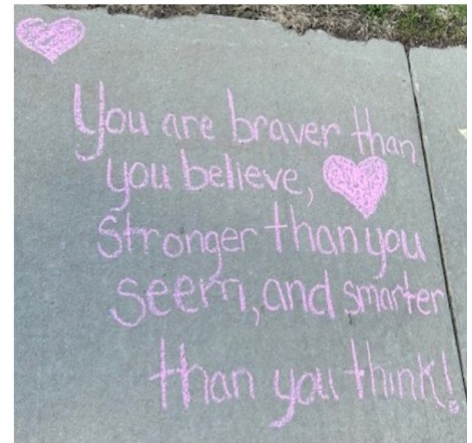 You are braver than
you believe,
Stronger than you
seem, and smarter
than you think!